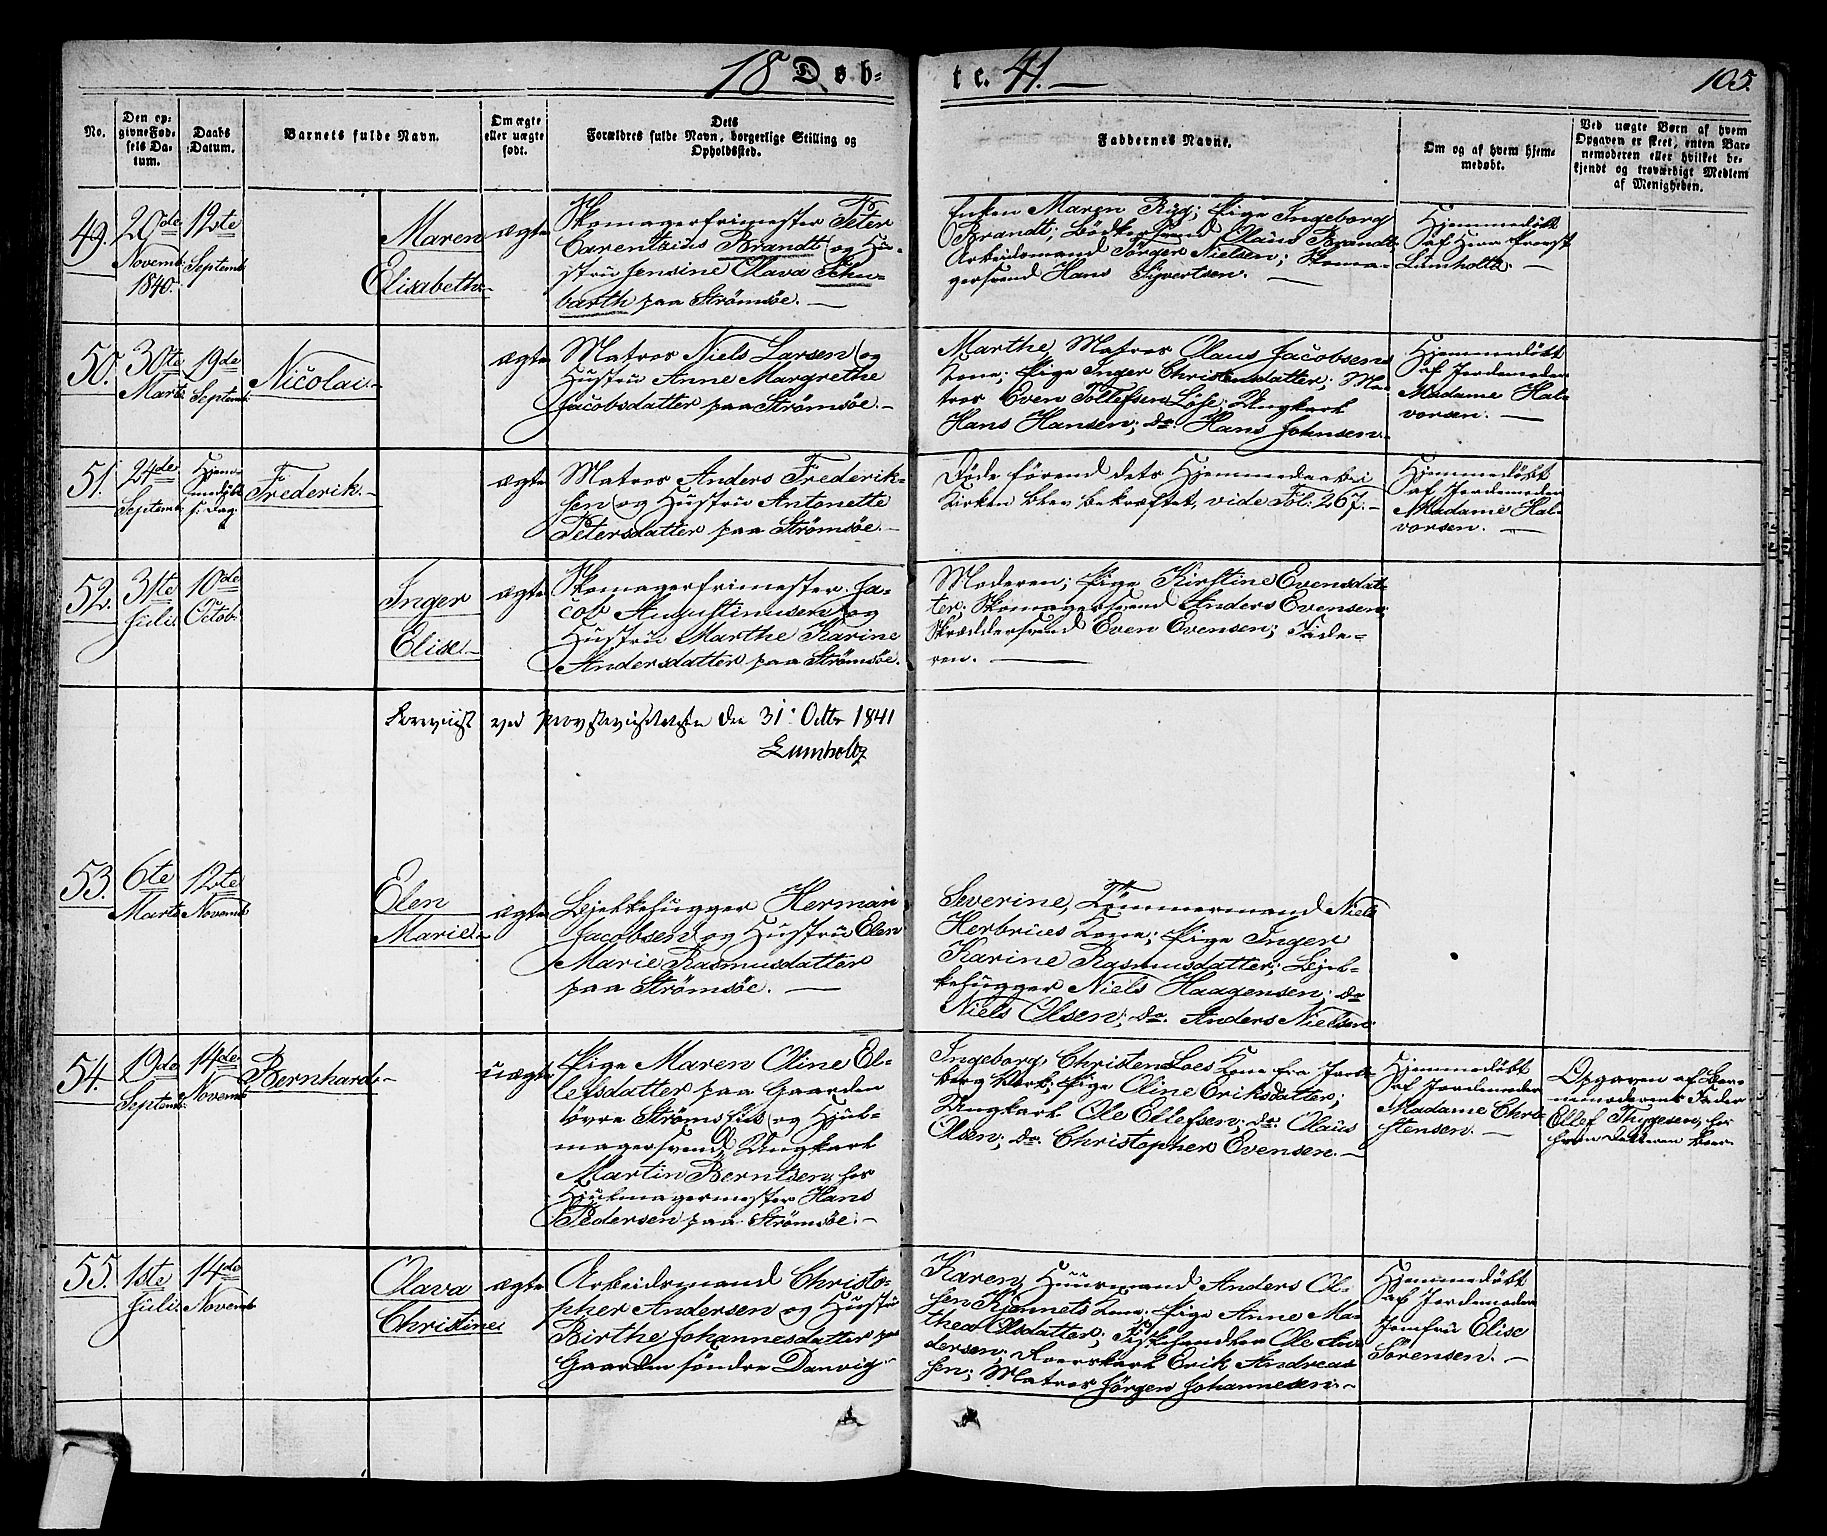 18 Døb-
te. 41.
105.
No.
Den op-
givne Fød-
sels Da-
tum.
Daabs
Datum.
Barnets fulde Navn.
Om ægte
eller uægte
født.
Dets
Forældres fulde Navn, borgerlige Stilling og
Opholdssted.
Faddernes Navne.
Om og af hvem hjem-
medøbt.
Ved uægte Børn af hvem
Opgaven er skeet, enten Bar-
nemoderen eller hvilket be-
kjendt og troværdigt Medlem
af Menigheden.
49.
20de
Novemb.
1840.
12te
Septemb
Maren
Elisabeth.
ægte
Skomagerfrimester Peter
Carentzius Brandt og Hu-
stru Jensine Olava Schu-
barth paa Strømsøe.
Enken Maren Ryg; Pige Ingeborg
Brandt; Bødkersvend Claus Brandt
Arbeidsmand Jørgen Nielsen; Skoma-
gersvend Hans Syvertsen.
Hjemmedøbt
af Herr Provst
Lumholtz.
50.
30te
Marts
19de
Septemb.
Nicolai.
ægte
Matros Niels Larsen og
Hustru Anne Margrethe
Jacobsdatter paa Strømsøe.
Marthe, Matros Claus Jacobsens
Kone; Pige Inger Christensdatter; Ma-
tros Even Tollefsen Løse; Ungkarl
Hans Hansen; do. Hans Johnsen.
Hjemmedøbt
af Jordemoder
Madame Hal-
vorsen.
51.
24de
Septemb.
Hjem-
medøbt
s. Dag
Frederik.
ægte
Matros Anders Frederik-
sen og Hustru Antonette
Petersdatter paa Strømsøe.
Døde førend dets Hjemmedaab i
Kirken blev bekræftet, vide Fol: 267.
Hjemmedøbt
af Jordemoder
Madame Hal-
vorsen.
52.
31te
Juli
10de
Octob.
Inger
Elise.
ægte
Skomagerfrimester Ja-
cob Augustinusen og
Hustru Marthe Karine
Andersdatter paa Strømsøe.
Moderen; Pige Kirstine Evensdat-
ter; Skomagersvend Anders Evensen;
Skræddersvend Even Evensen; Fade-
ren.
Foreviist ved Provstevisitatsen den 31 Octbr 1841
Lumholtz
53.
6te
Marts
12te
Novemb
Elen
Marie.
ægte
Bjelkehugger Herman
Jacobsen og Hustru Elen
Marie Rasmusdatter
paa Strømsøe.
Severine, Tømmermand Niels
Herbrues Kone; Pige Inger
Karine Rasmusdatter; Bjel-
kehugger Niels Haagensen; do
Niels Olsen; do. Anders Nielsen.
54.
19de
Septemb.
14de
Novemb
Bernhard.
uægte
Pige Maren Oline El-
lefsdatter paa Gaarden
øvre Strøms
og Hjul-
magersvend, Ungkarl
Martin Berntsen, hos
Hjulmagermester Hans
Pedersen paa Strømsøe.
Ingeborg, Christen Loes Kone fra Jarls-
berg Værk; Pige Oline Eriksdatter;
Ungkarl Ole Ellefsen; do. Olaus
Olsen; do. Christopher Evensen.
Hjemmedøbt
af Jordemoder
Madame Chri-
stensen.
Opgaven af Bar-
nemoderens Fader
Ellef Thygesen, hos
hvem Datteren boer
55.
1ste
Juli
14de
Novemb
Olava
Christine
ægte
Arbeidsmand Christo-
pher Andersen og Hustru
Birthe Johannesdatter paa
Gaarden søndre Danvig.
Karen, Huusmand Anders Ol-
sen Kjønnets Kone; Pige Anne Ma-
thea Olsdatter; Fiskehandler Ole An-
dersen; Roerskarl Erik Andreas-
sen; Matros Jørgen Johannesen.
Hjemmedøbt
af Jordemoder
Jomfru Elise
Sørensen.